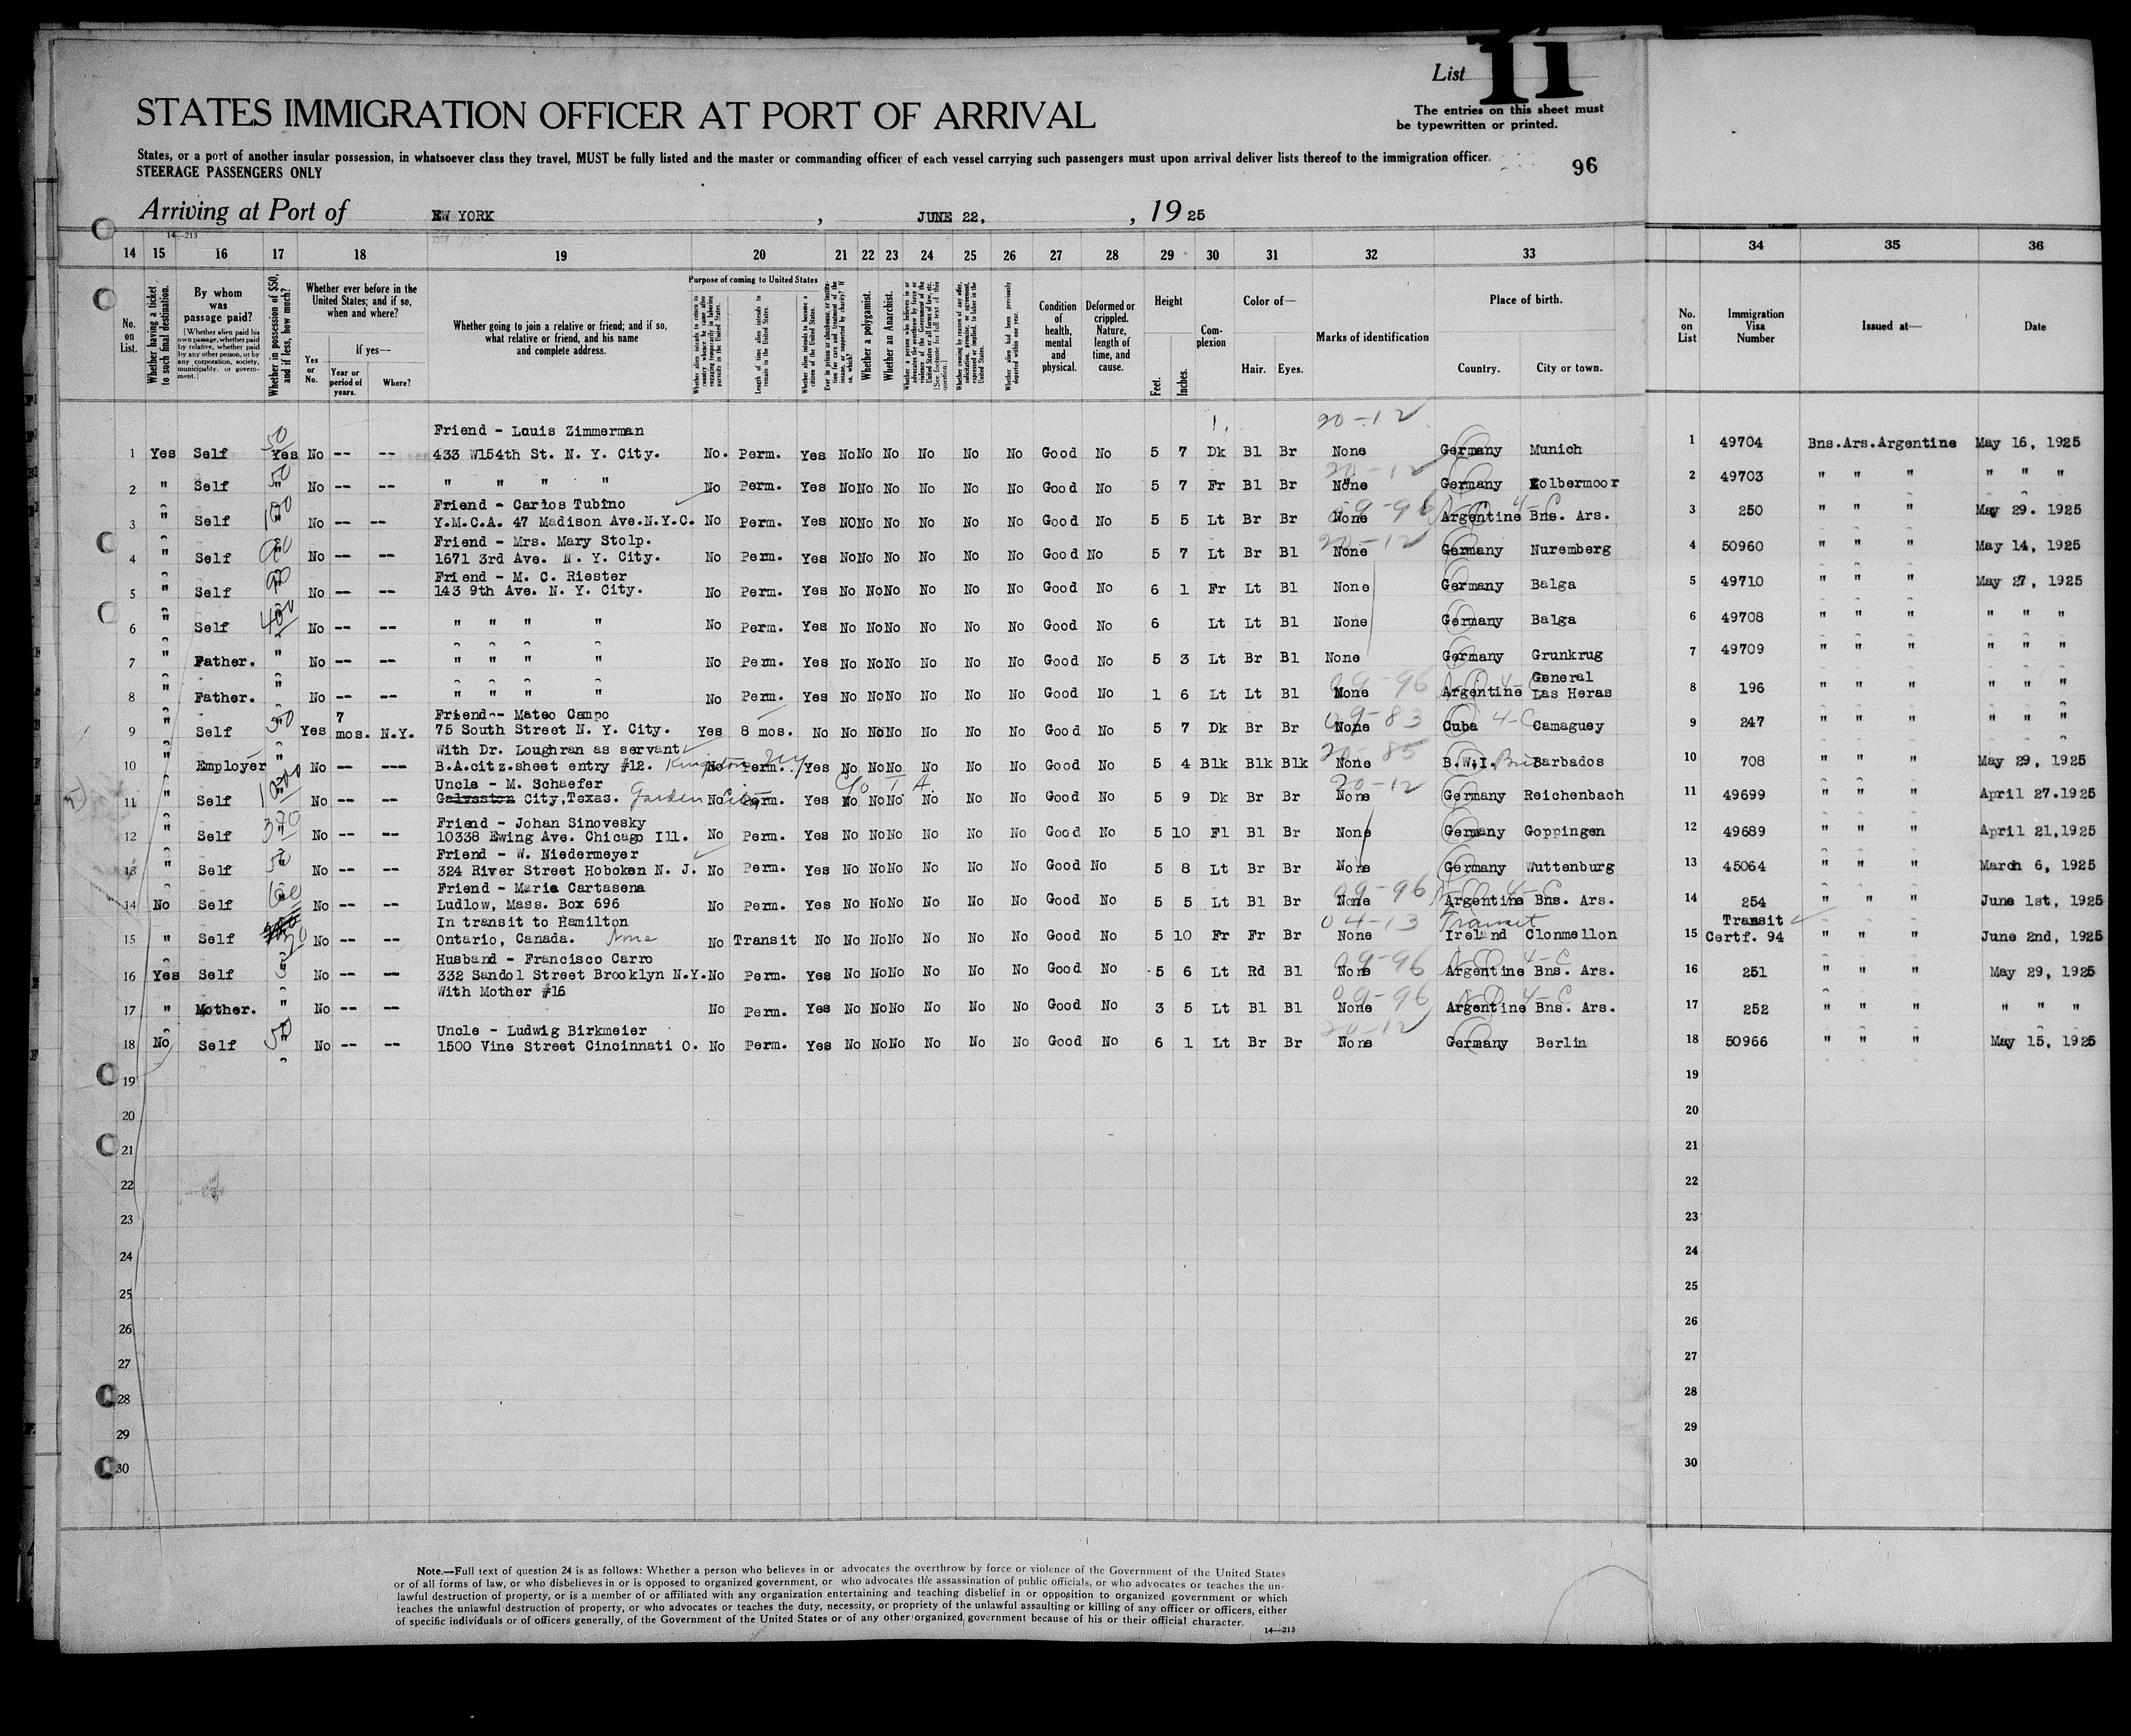 List 11
STATES IMMIGRATION OFFICER AT PORT OF ARRIVAL
The entries on this sheet must
be typewritten or printed.
States, or a port of another insular possession, in whatsoever class they travel, MUST be fully listed and the master or commanding officer of each vessel carrying such passengers must upon arrival deliver lists thereof to the immigration officer.
STEERAGE PASSENGERS ONLY
96
Arriving at Port of EW YORK, JUNE 22, 1925
14—213
14 15 16 17 18 19 20 21 22 23 24 25 26 27 28 29 30 31 32 33 34 35 36
No. on List.
Whether having a ticket to such final destination.
By whom was passage paid?
[Whether alien paid his own passage, whether paid by relative, whether paid by any other person, or by any corporation, society, municipality, or government.]
Whether in possession of $50, and if less, how much?
Whether ever before in the United States; and if so, when and where?
Yes or No.
If yes—
Year or period of years.
Where?
Whether going to join a relative or friend; and if so, what relative or friend, and his name and complete address.
Purpose of coming to United States
Whether alien intends to return to country whence he came after engaging temporarily in laboring pursuits in the United States.
Length of time alien intends to remain in the United States.
Whether alien intends to become a citizen of the United States.
Ever in prison or almshouse, or institution for care and treatment of the insane, or supported by charity? If so, which?
Whether a polygamist.
Whether an Anarchist.
Whether a person who believes in or advocates the overthrow by force or violence of the Government of the United States or all forms of law, etc. [See footnote for full text of this question.]
Whether coming by reason of any offer, solicitation, promise, or agreement, expressed or implied, to labor in the United States.
Whether alien had been previously deported within one year.
Condition of health, mental and physical.
Deformed or crippled. Nature, length of time, and cause.
Height
Feet. Inches.
Complexion
Color of—
Hair. Eyes.
Marks of identification
Place of birth.
Country. City or town.
No. on List
Immigration Visa Number
Issued at—
Date
Friend - Louis Zimmerman 20-12
1 Yes Self 50 Yes No -- -- 433 W154th St. N. Y. City. No. Perm. Yes No No No No No No Good No 5 7 Dk Bl Br None Germany Munich 1 49704 Bns.Ars.Argentine May 16, 1925
2 " Self 50 " No -- -- " " " " No Perm. Yes No No No No No No Good No 5 7 Fr Bl Br None 20-12 Germany Kolbermoor 2 49703 " " " " " "
Friend - Carlos Tubino
3 " Self 100 " No -- -- Y.M.C.A. 47 Madison Ave.N.Y.C. No Perm. Yes No No No No No No Good No 5 5 Lt Br Br None 09-96 Argentine Bns. Ars. 3 250 " " " May 29. 1925
Friend - Mrs. Mary Stolp.
4 " Self " No -- -- 1671 3rd Ave. N. Y. City. No Perm. Yes No No No No No No Good No 5 7 Lt Br Bl None 20-12 Germany Nuremberg 4 50960 " " " May 14, 1925
Friend - M. C. Riester
5 " Self " No -- -- 143 9th Ave. N. Y. City. No Perm. Yes No No No No No No Good No 6 1 Fr Lt Bl None Germany Balga 5 49710 " " " May 27, 1925
6 " Self 400 " No -- -- " " " " No Perm. Yes No No No No No No Good No 6 Lt Lt Bl None Germany Balga 6 49708 " " " " " "
7 " Father. " No -- -- " " " " No Perm. Yes No No No No No No Good No 5 3 Lt Br Bl None Germany Grunkrug 7 49709 " " " " " "
General
8 " Father. " No -- -- " " " " No Perm. Yes No No No No No No Good No 1 6 Lt Lt Bl None 09-96 Argentine Las Heras 8 196 " " " " " "
7 Friend-- Mateo Campo
9 " Self " Yes mos. N.Y. 75 South Street N. Y. City. Yes 8 mos. No No No No No No No Good No 5 7 Dk Br Br None 09-83 Cuba 4-C Camaguey 9 247 " " " " " "
With Dr. Loughran as servant
10 " Employer " No -- --- B.A.citz.sheet entry #12. Kingston NY No Perm. Yes No No No No No No Good No 5 4 Blk Blk Blk None 20-85 B.W.I. Barbados 10 708 " " " May 29, 1925
Uncle - M. Schaefer
11 " Self " No -- -- Galveston City,Texas. Garden City No Perm. Yes No No No No No No Good No 5 9 Dk Br Br None 20-12 Germany Reichenbach 11 49699 " " " April 27.1925
Friend - Johan Sinovesky
12 " Self 370 " No -- -- 10338 Ewing Ave. Chicago Ill. No Perm. Yes No No No No No No Good No 5 10 Fl Bl Br None Germany Goppingen 12 49689 " " " April 21,1925
Friend - W. Niedermeyer
13 " Self 50 " No -- -- 324 River Street Hoboken N. J. No Perm. Yes No No No No No No Good No 5 8 Lt Br Br None Germany Wuttenburg 13 45064 " " " March 6, 1925
Friend - Maria Cartasena
14 No Self 60 " No -- -- Ludlow, Mass. Box 696 No Perm. Yes No No No No No No Good No 5 5 Lt Bl Br None 09-96 4-C Argentine Bns. Ars. 14 254 " " " June 1st, 1925
In transit to Hamilton 04-13 Transit Transit
15 " Self No -- -- Ontario, Canada. None No Transit No No No No No No No Good No 5 10 Fr Fr Br None Ireland Clonmellon 15 Certf. 94 " " " June 2nd, 1925
Husband - Francisco Carro
16 Yes Self " No -- -- 332 Sandol Street Brooklyn N.Y. No Perm. Yes No No No No No No Good No 5 6 Lt Rd Bl None 09-96 4-C Argentine Bns. Ars. 16 251 " " " May 29, 1925
With Mother #16
17 " Mother. " No -- -- No Perm. Yes No No No No No No Good No 3 5 Lt Bl Bl None 09-96 4-C Argentine Bns. Ars. 17 252 " " " " " "
Uncle - Ludwig Birkmeier
18 No Self 50 " No -- -- 1500 Vine Street Cincinnati O. No Perm. Yes No No No No No No Good No 6 1 Lt Br Br None 20-12 Germany Berlin 18 50966 " " " May 15, 1925
19 19
20 20
21 21
22 22
23 23
24 24
25 25
26 26
27 27
28 28
29 29
30 30
Note.—Full text of question 24 is as follows: Whether a person who believes in or advocates the overthrow by force or violence of the Government of the United States
or of all forms of law, or who disbelieves in or is opposed to organized government, or who advocates the assassination of public officials, or who advocates or teaches the un-
lawful destruction of property, or is a member of or affiliated with any organization entertaining and teaching disbelief in or opposition to organized government or which
teaches the unlawful destruction of property, or who advocates or teaches the duty, necessity, or propriety of the unlawful assaulting or killing of any officer or officers, either
of specific individuals or of officers generally, of the Government of the United States or of any other organized government because of his or their official character.
14—213